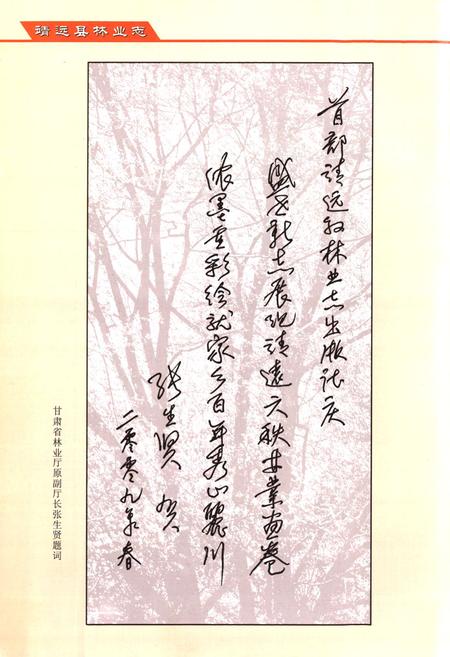 靖远县林业志
首部靖远县林业志出版志庆
盛世新志展现靖远六秩林业画卷
浓墨重彩绘就家乡百年秀山丽川
张生贤 贺
二零零九年春
甘肃省林业厅原副厅长张生贤题词